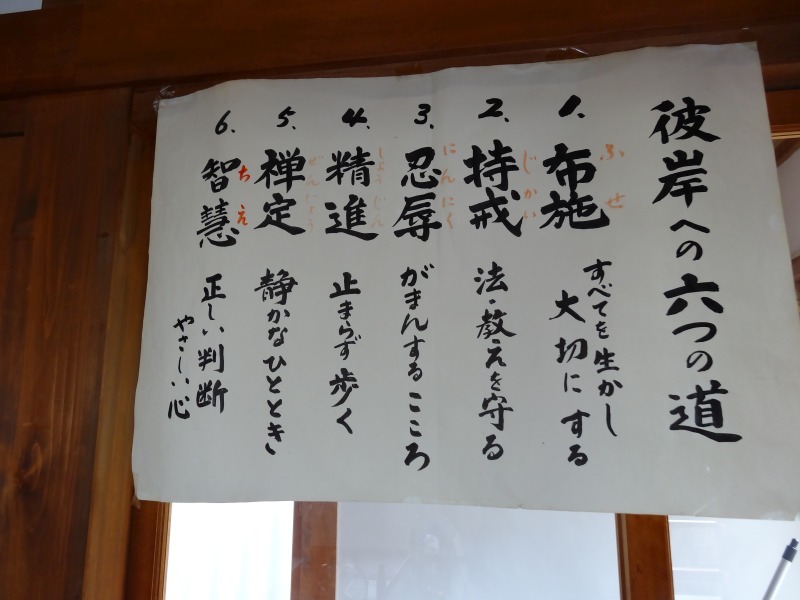 彼岸への六つの道
1、布施
ふせ
すべてを生かし
大切にする
2、持戒
じかい
法・教えを守る
3、忍辱
にんにく
がまんするこころ
4、精進
しょうじん
止まらず歩く
5、禅定
ぜんじょう
静かなひととき
6、智慧
ちえ
正しい判断
やさしい心